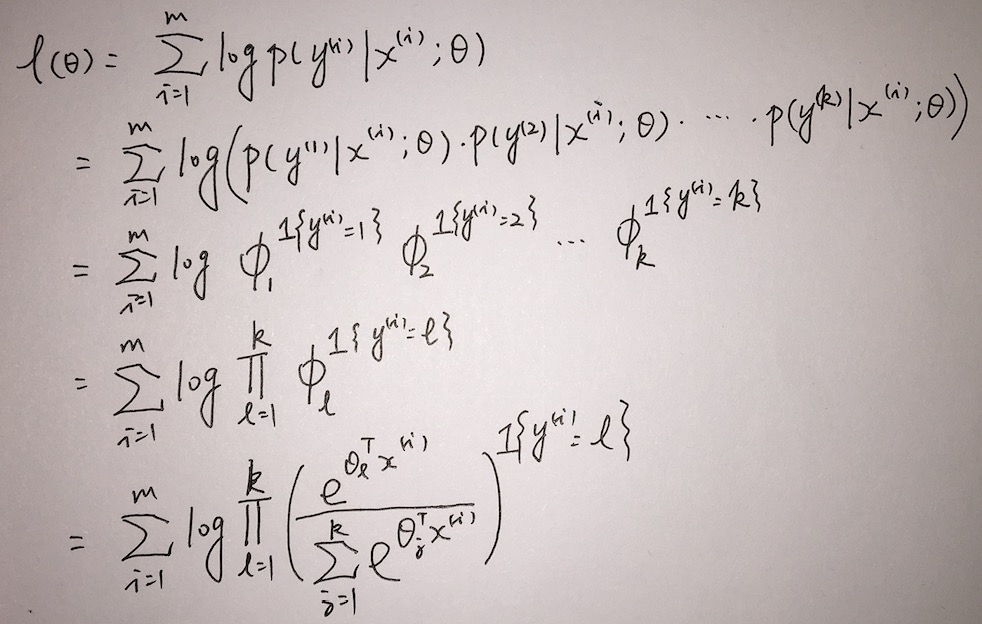 ℓ(θ) = ∑_{i=1}^{m} log p(y^{(i)} | x^{(i)}; θ)
= ∑_{i=1}^{m} log(p(y^{(1)} | x^{(i)}; θ) · p(y^{(2)} | x^{(i)}; θ) · ⋯ · p(y^{(k)} | x^{(i)}; θ))
= ∑_{i=1}^{m} log ϕ_1^{1{y^{(i)}=1}} ϕ_2^{1{y^{(i)}=2}} ⋯ ϕ_k^{1{y^{(i)}=k}}
= ∑_{i=1}^{m} log ∏_{ℓ=1}^{k} ϕ_ℓ^{1{y^{(i)}=ℓ}}
= ∑_{i=1}^{m} log ∏_{ℓ=1}^{k} (e^{θ_ℓ^T x^{(i)}} / ∑_{j=1}^{k} e^{θ_j^T x^{(i)}})^{1{y^{(i)}=ℓ}}